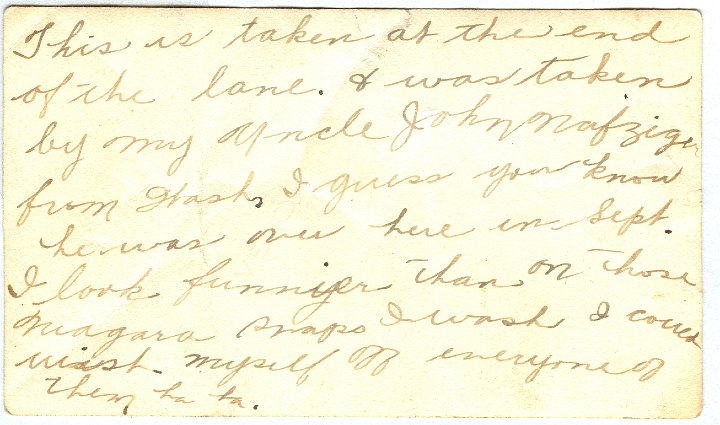 This is taken at the end
of the lane. & was taken
by my Uncle John Nafziger
from Wash, I guess you know
he was over here in Sept.
I look funnier than on those
Niagara snaps I wash I could
myself off everyone of
them ha ha.